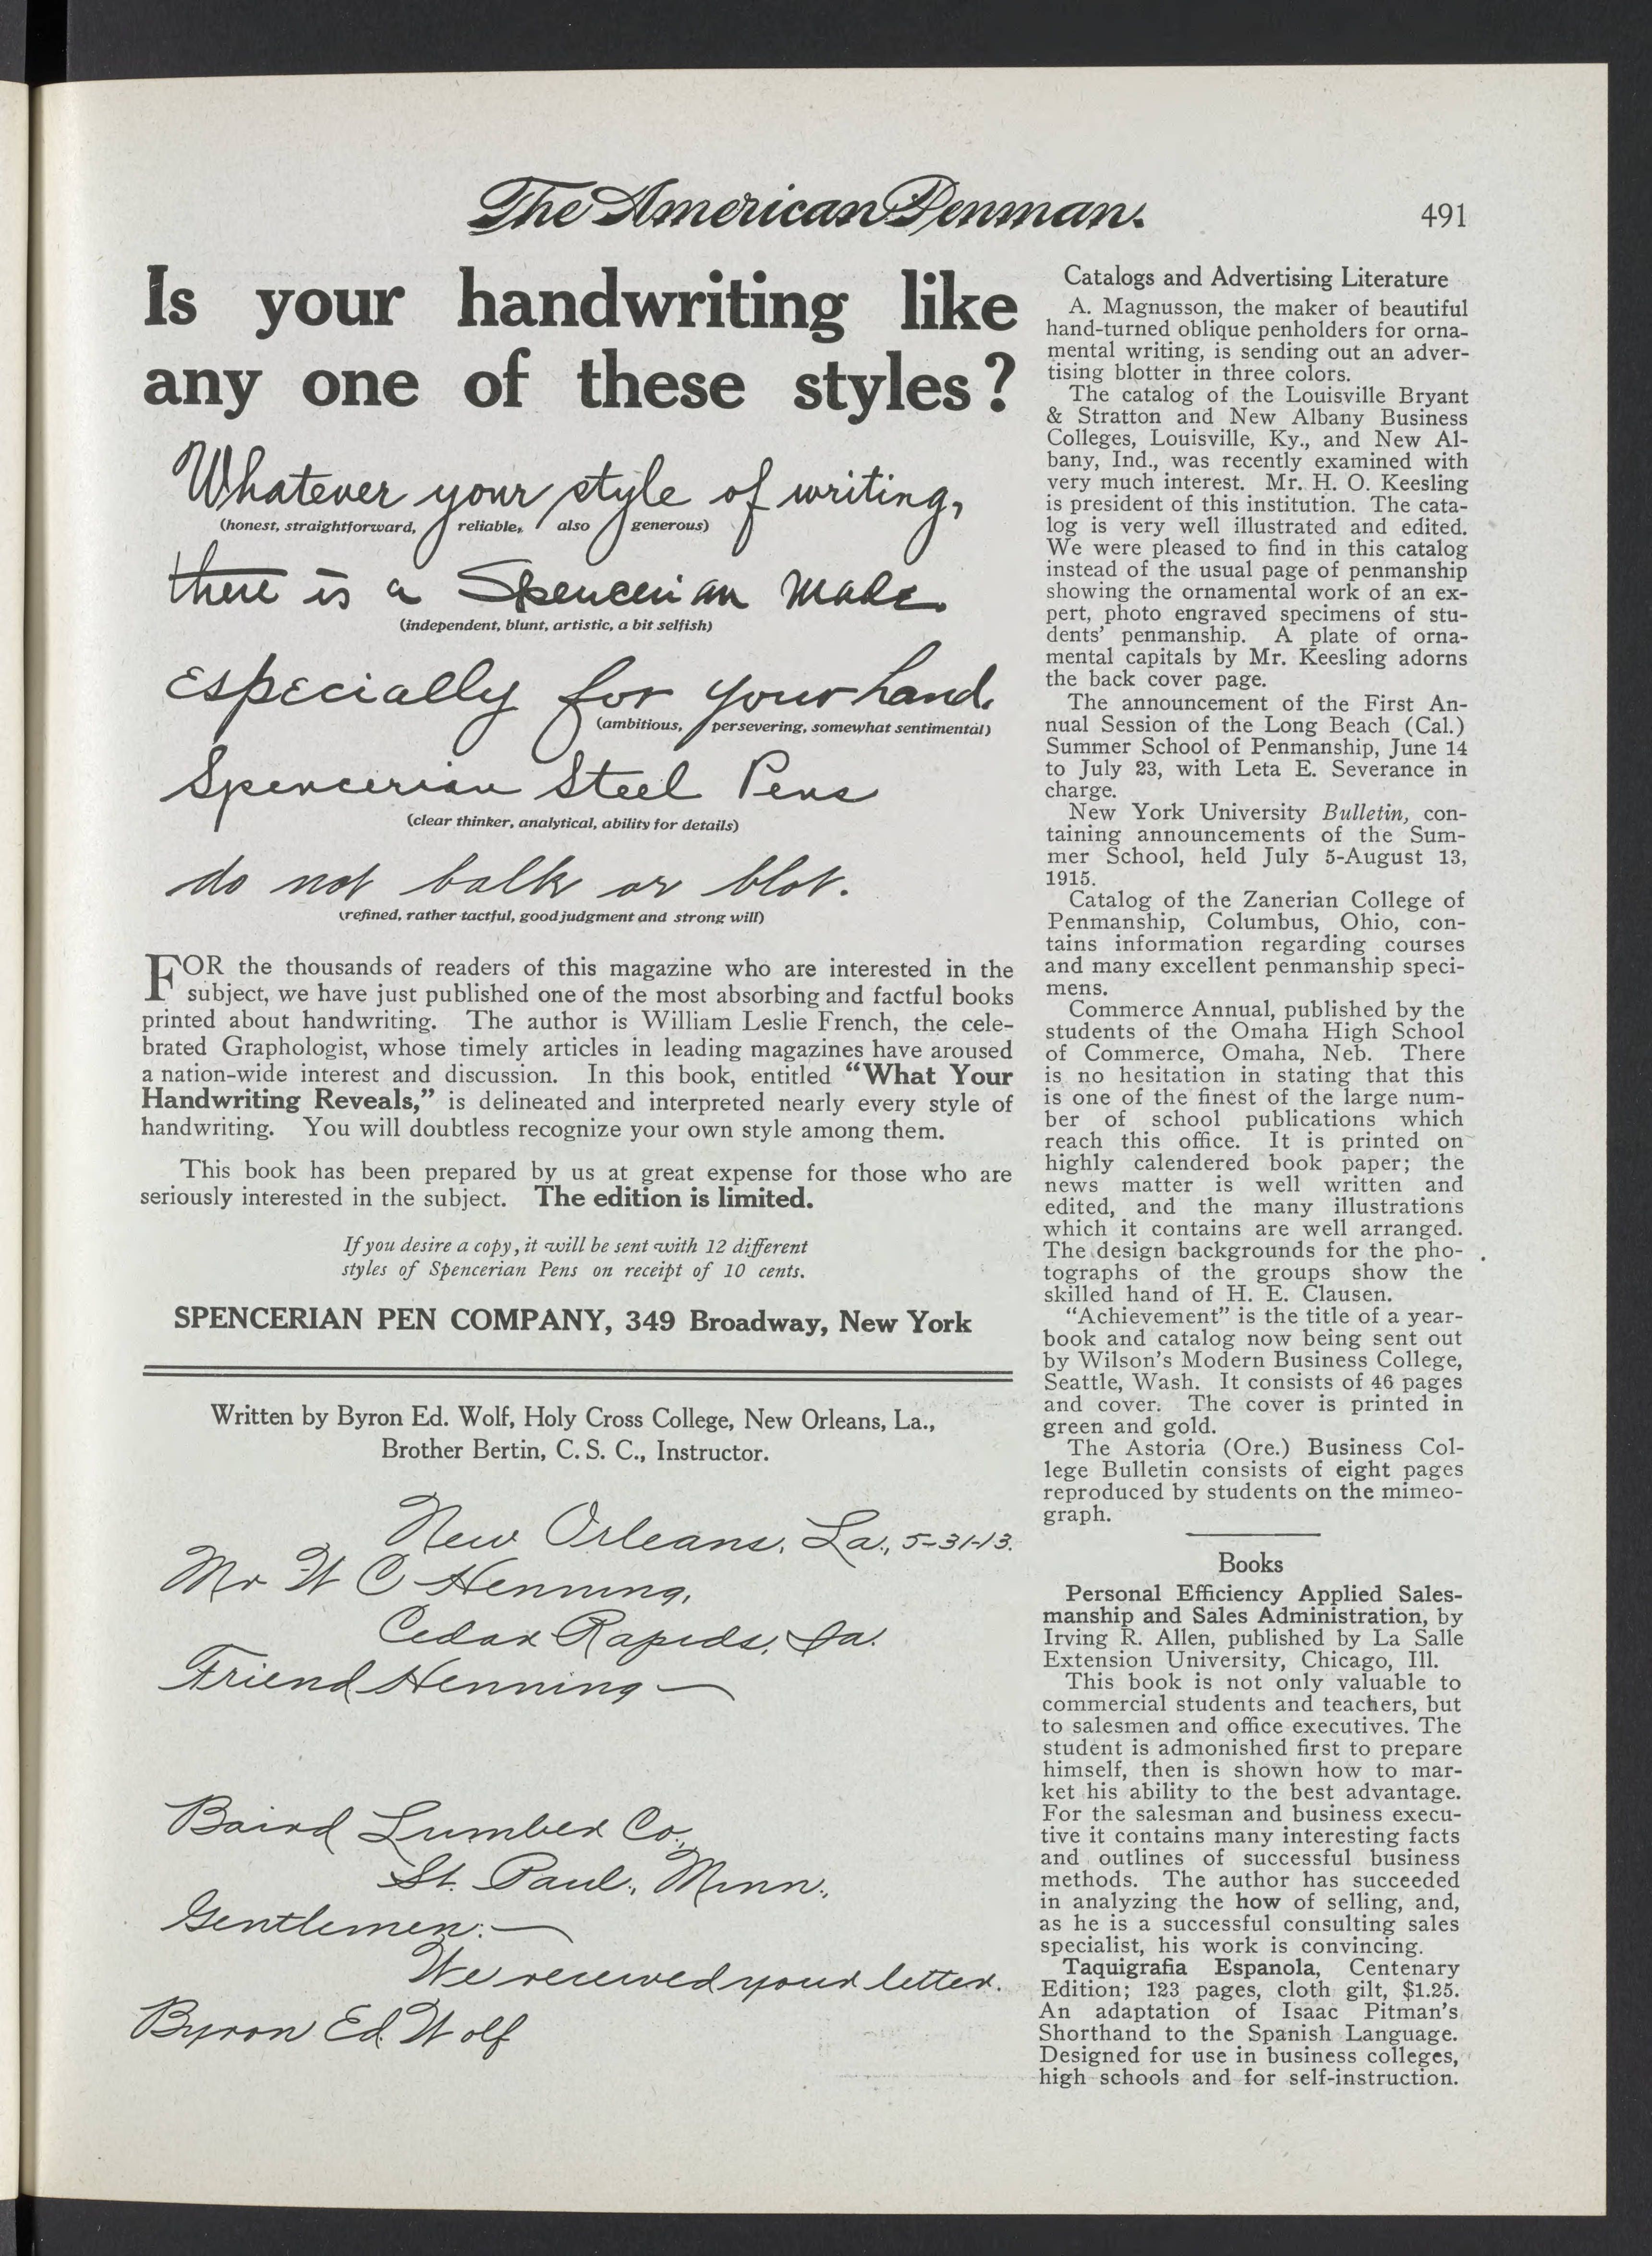 The American Penman.
491
Is your handwriting like
any one of these styles?
Whatever your style of writing,
(honest, straightforward, reliable, also generous)
there is a Spencerian made
(independent, blunt, artistic, a bit selfish)
especially for your hand.
(ambitious, persevering, somewhat sentimental)
Spencerian Steel Pens
(clear thinker, analytical, ability for details)
do not balk or blot.
(refined, rather tactful, good judgment and strong will)
FOR the thousands of readers of this magazine who are interested in the
subject, we have just published one of the most absorbing and factful books
printed about handwriting. The author is William Leslie French, the cele-
brated Graphologist, whose timely articles in leading magazines have aroused
a nation-wide interest and discussion. In this book, entitled “What Your
Handwriting Reveals,” is delineated and interpreted nearly every style of
handwriting. You will doubtless recognize your own style among them.
This book has been prepared by us at great expense for those who are
seriously interested in the subject. The edition is limited.
If you desire a copy, it will be sent with 12 different
styles of Spencerian Pens on receipt of 10 cents.
SPENCERIAN PEN COMPANY, 349 Broadway, New York
Written by Byron Ed. Wolf, Holy Cross College, New Orleans, La.,
Brother Bertin, C. S. C., Instructor.
New Orleans, La., 5-31-13.
Mr W C Henning,
Cedar Rapids, Ia.
Friend Henning —
Baird Lumber Co.,
St. Paul, Minn.,
Gentlemen:—
We received your letter.
Byron Ed. Wolf
Catalogs and Advertising Literature
A. Magnusson, the maker of beautiful
hand-turned oblique penholders for orna-
mental writing, is sending out an adver-
tising blotter in three colors.
The catalog of the Louisville Bryant
& Stratton and New Albany Business
Colleges, Louisville, Ky., and New Al-
bany, Ind., was recently examined with
very much interest. Mr. H. O. Keesling
is president of this institution. The cata-
log is very well illustrated and edited.
We were pleased to find in this catalog
instead of the usual page of penmanship
showing the ornamental work of an ex-
pert, photo engraved specimens of stu-
dents’ penmanship. A plate of orna-
mental capitals by Mr. Keesling adorns
the back cover page.
The announcement of the First An-
nual Session of the Long Beach (Cal.)
Summer School of Penmanship, June 14
to July 23, with Leta E. Severance in
charge.
New York University Bulletin, con-
taining announcements of the Sum-
mer School, held July 5-August 13,
1915.
Catalog of the Zanerian College of
Penmanship, Columbus, Ohio, con-
tains information regarding courses
and many excellent penmanship speci-
mens.
Commerce Annual, published by the
students of the Omaha High School
of Commerce, Omaha, Neb. There
is no hesitation in stating that this
is one of the finest of the large num-
ber of school publications which
reach this office. It is printed on
highly calendered book paper; the
news matter is well written and
edited, and the many illustrations
which it contains are well arranged.
The design backgrounds for the pho-
tographs of the groups show the
skilled hand of H. E. Clausen.
“Achievement” is the title of a year-
book and catalog now being sent out
by Wilson’s Modern Business College,
Seattle, Wash. It consists of 46 pages
and cover. The cover is printed in
green and gold.
The Astoria (Ore.) Business Col-
lege Bulletin consists of eight pages
reproduced by students on the mimeo-
graph.
Books
Personal Efficiency Applied Sales-
manship and Sales Administration, by
Irving R. Allen, published by La Salle
Extension University, Chicago, Ill.
This book is not only valuable to
commercial students and teachers, but
to salesmen and office executives. The
student is admonished first to prepare
himself, then is shown how to mar-
ket his ability to the best advantage.
For the salesman and business execu-
tive it contains many interesting facts
and outlines of successful business
methods. The author has succeeded
in analyzing the how of selling, and,
as he is a successful consulting sales
specialist, his work is convincing.
Taquigrafia Espanola, Centenary
Edition; 123 pages, cloth gilt, $1.25.
An adaptation of Isaac Pitman’s
Shorthand to the Spanish Language.
Designed for use in business colleges,
high schools and for self-instruction.